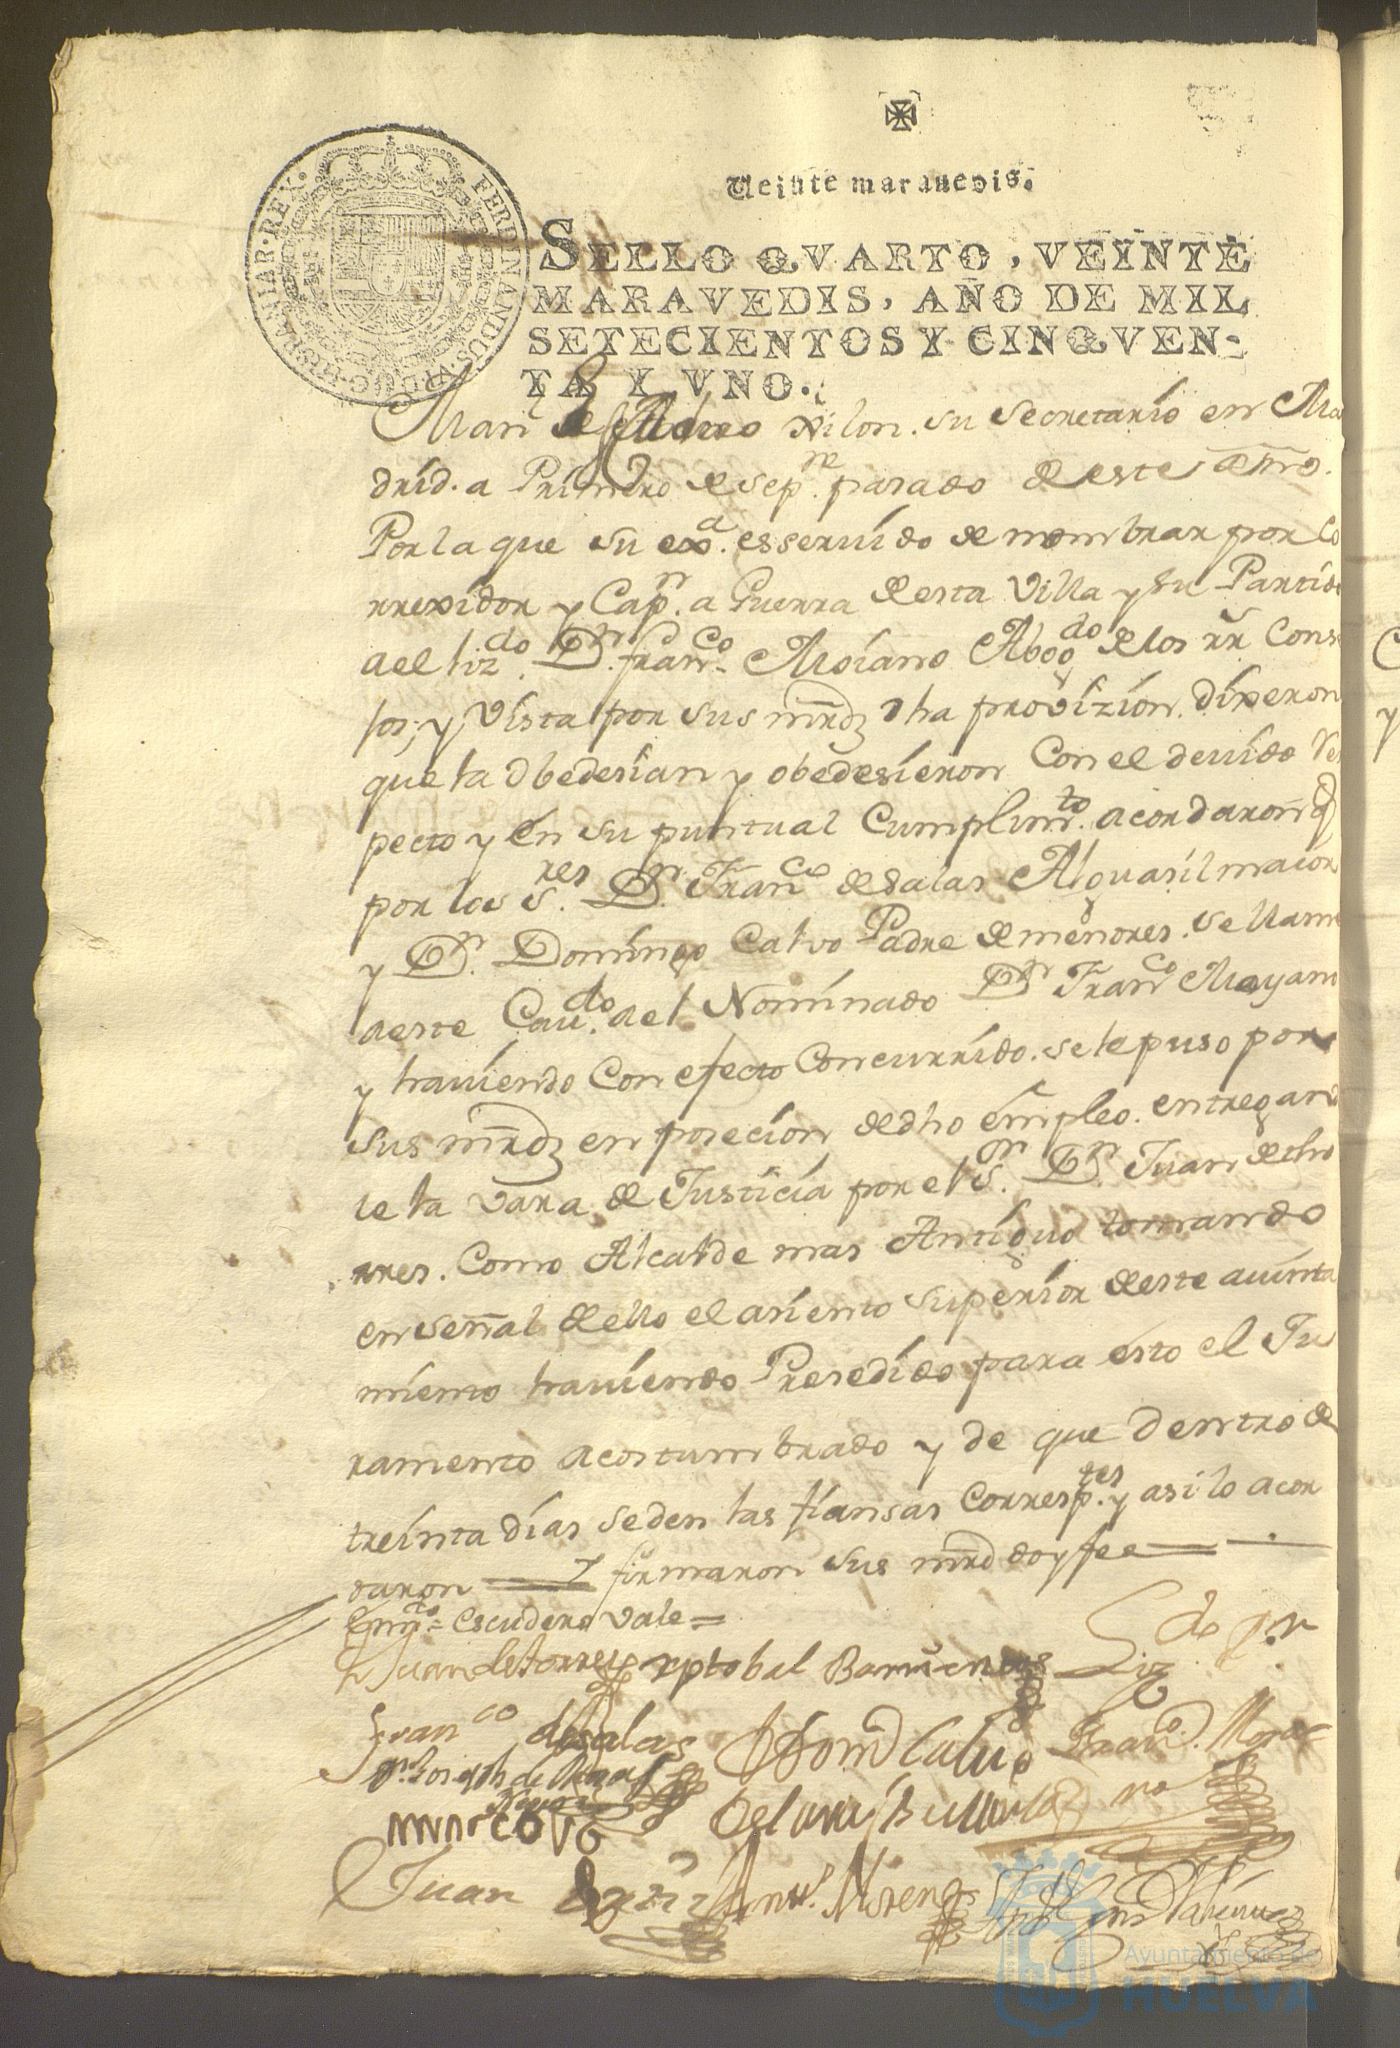 Veinte maravedis.
SELLO QVARTO, VEINTE
MARAVEDIS, AÑO DE MIL
SETECIENTOS Y CINQVEN-
TA Y VNO.
HISPANIAR·REX· FERDINANDUS·VI·D·G·
Man su Secretario en Ma
drid. a Primero de sepre. pasado deeste año.
Por la que su exa. es seruido de nombrar por Co
rrexidor y Capn. a Guerra desta Villa y su Partido
a el lizdo. Dn. franco. Moiano Abogdo de los rr Conse
jos; y Vista por sus mrdz dha provizion. dixeron
que la obedesian y obedesieron Con el deuido Res
pecto y en su puntual Cumplimto. acordaron q
por los Sres. Dn. Franco desalas Alguasil maior
y Dn. Domingo Calvo Padre de menores. se llame
a este Caudo. a el Nominado Dn Franco Moyano
y hauiendo Con efecto Concurrido. se le puso por
sus mrdz en posecion dedho empleo. entregand
le la vara de Justicia por el Sr. Dn. Juan deto
rres. Como Alcalde mas Antiguo tomando
en señal dello el asiento superior deeste aiunta
miento hauiendo Presedido para esto el Ju
ramento acostumbrado y de que dentro de
treinta dias se den las fiansas Corresptes. y asi lo acor
daron y firmaron sus mrd doy fee
Enmdo = Escudero Vale =
Juan de torres xptobal Barrientos Lizdo Dn
Franco de Salas Domo Caluo Franco. Moya
no
Juan Antto. Moreno
Ayuntamiento de
HUELVA